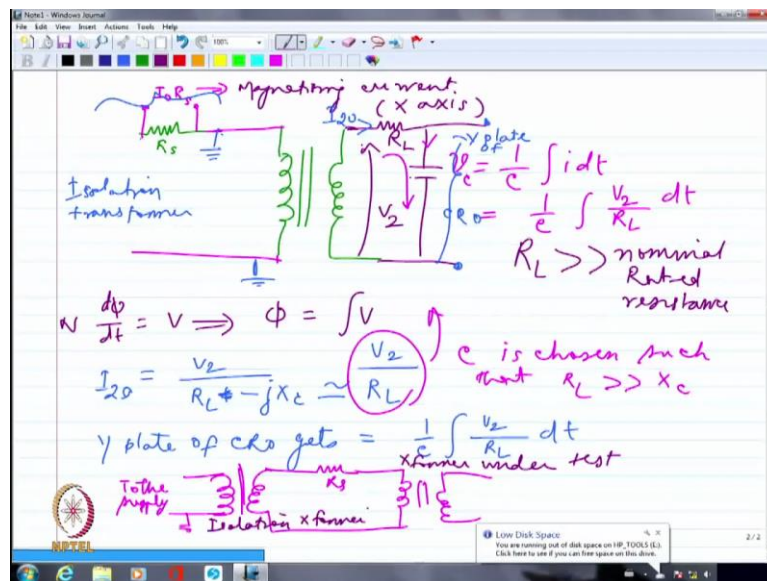 Note1 - Windows Journal
File Edit View Insert Actions Tools Help
100%
I₀ Rₛ → Magnetising current.
(X axis)
Rₛ
I₂₀
R_L
y plate
of
CRO
V₂
v_c = 1/c ∫ i dt
= 1/c ∫ V₂/R_L dt
Isolation
transformer
R_L >> nominal
Rated
resistance
N dφ/dt = V ⟹ φ = ∫V
I₂₀ = V₂/(R_L - jX_c) ≃ V₂/R_L
c is chosen such
that R_L >> X_c
y plate of CRO gets = 1/c ∫ V₂/R_L dt
Xformer under test
To the
supply
Rₛ
Isolation Xformer
NPTEL
Low Disk Space
You are running out of disk space on HP_TOOLS (E:).
Click here to see if you can free space on this drive.
2/2